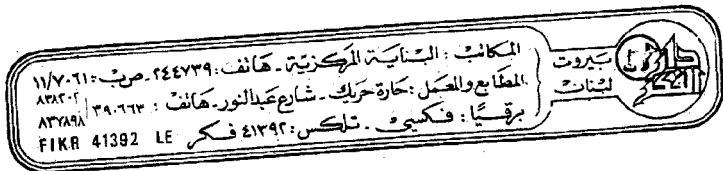 دار الفكر
بيروت
لبنان
المكاتب : البناية المركزية - هاتف : ٢٤٤٧٣٩ - ص.ب : ١١/٧٠٦١
المطابع والمعمل : حارة حريك - شارع عبد النور - هاتف : ٣٩٠٦٦٣
٨٣٨٢٠٢
٨٣٧٨٩٨
برقيًا : فكسي - تلكس : ٤١٣٩٢ فكر
FIKR 41392 LE